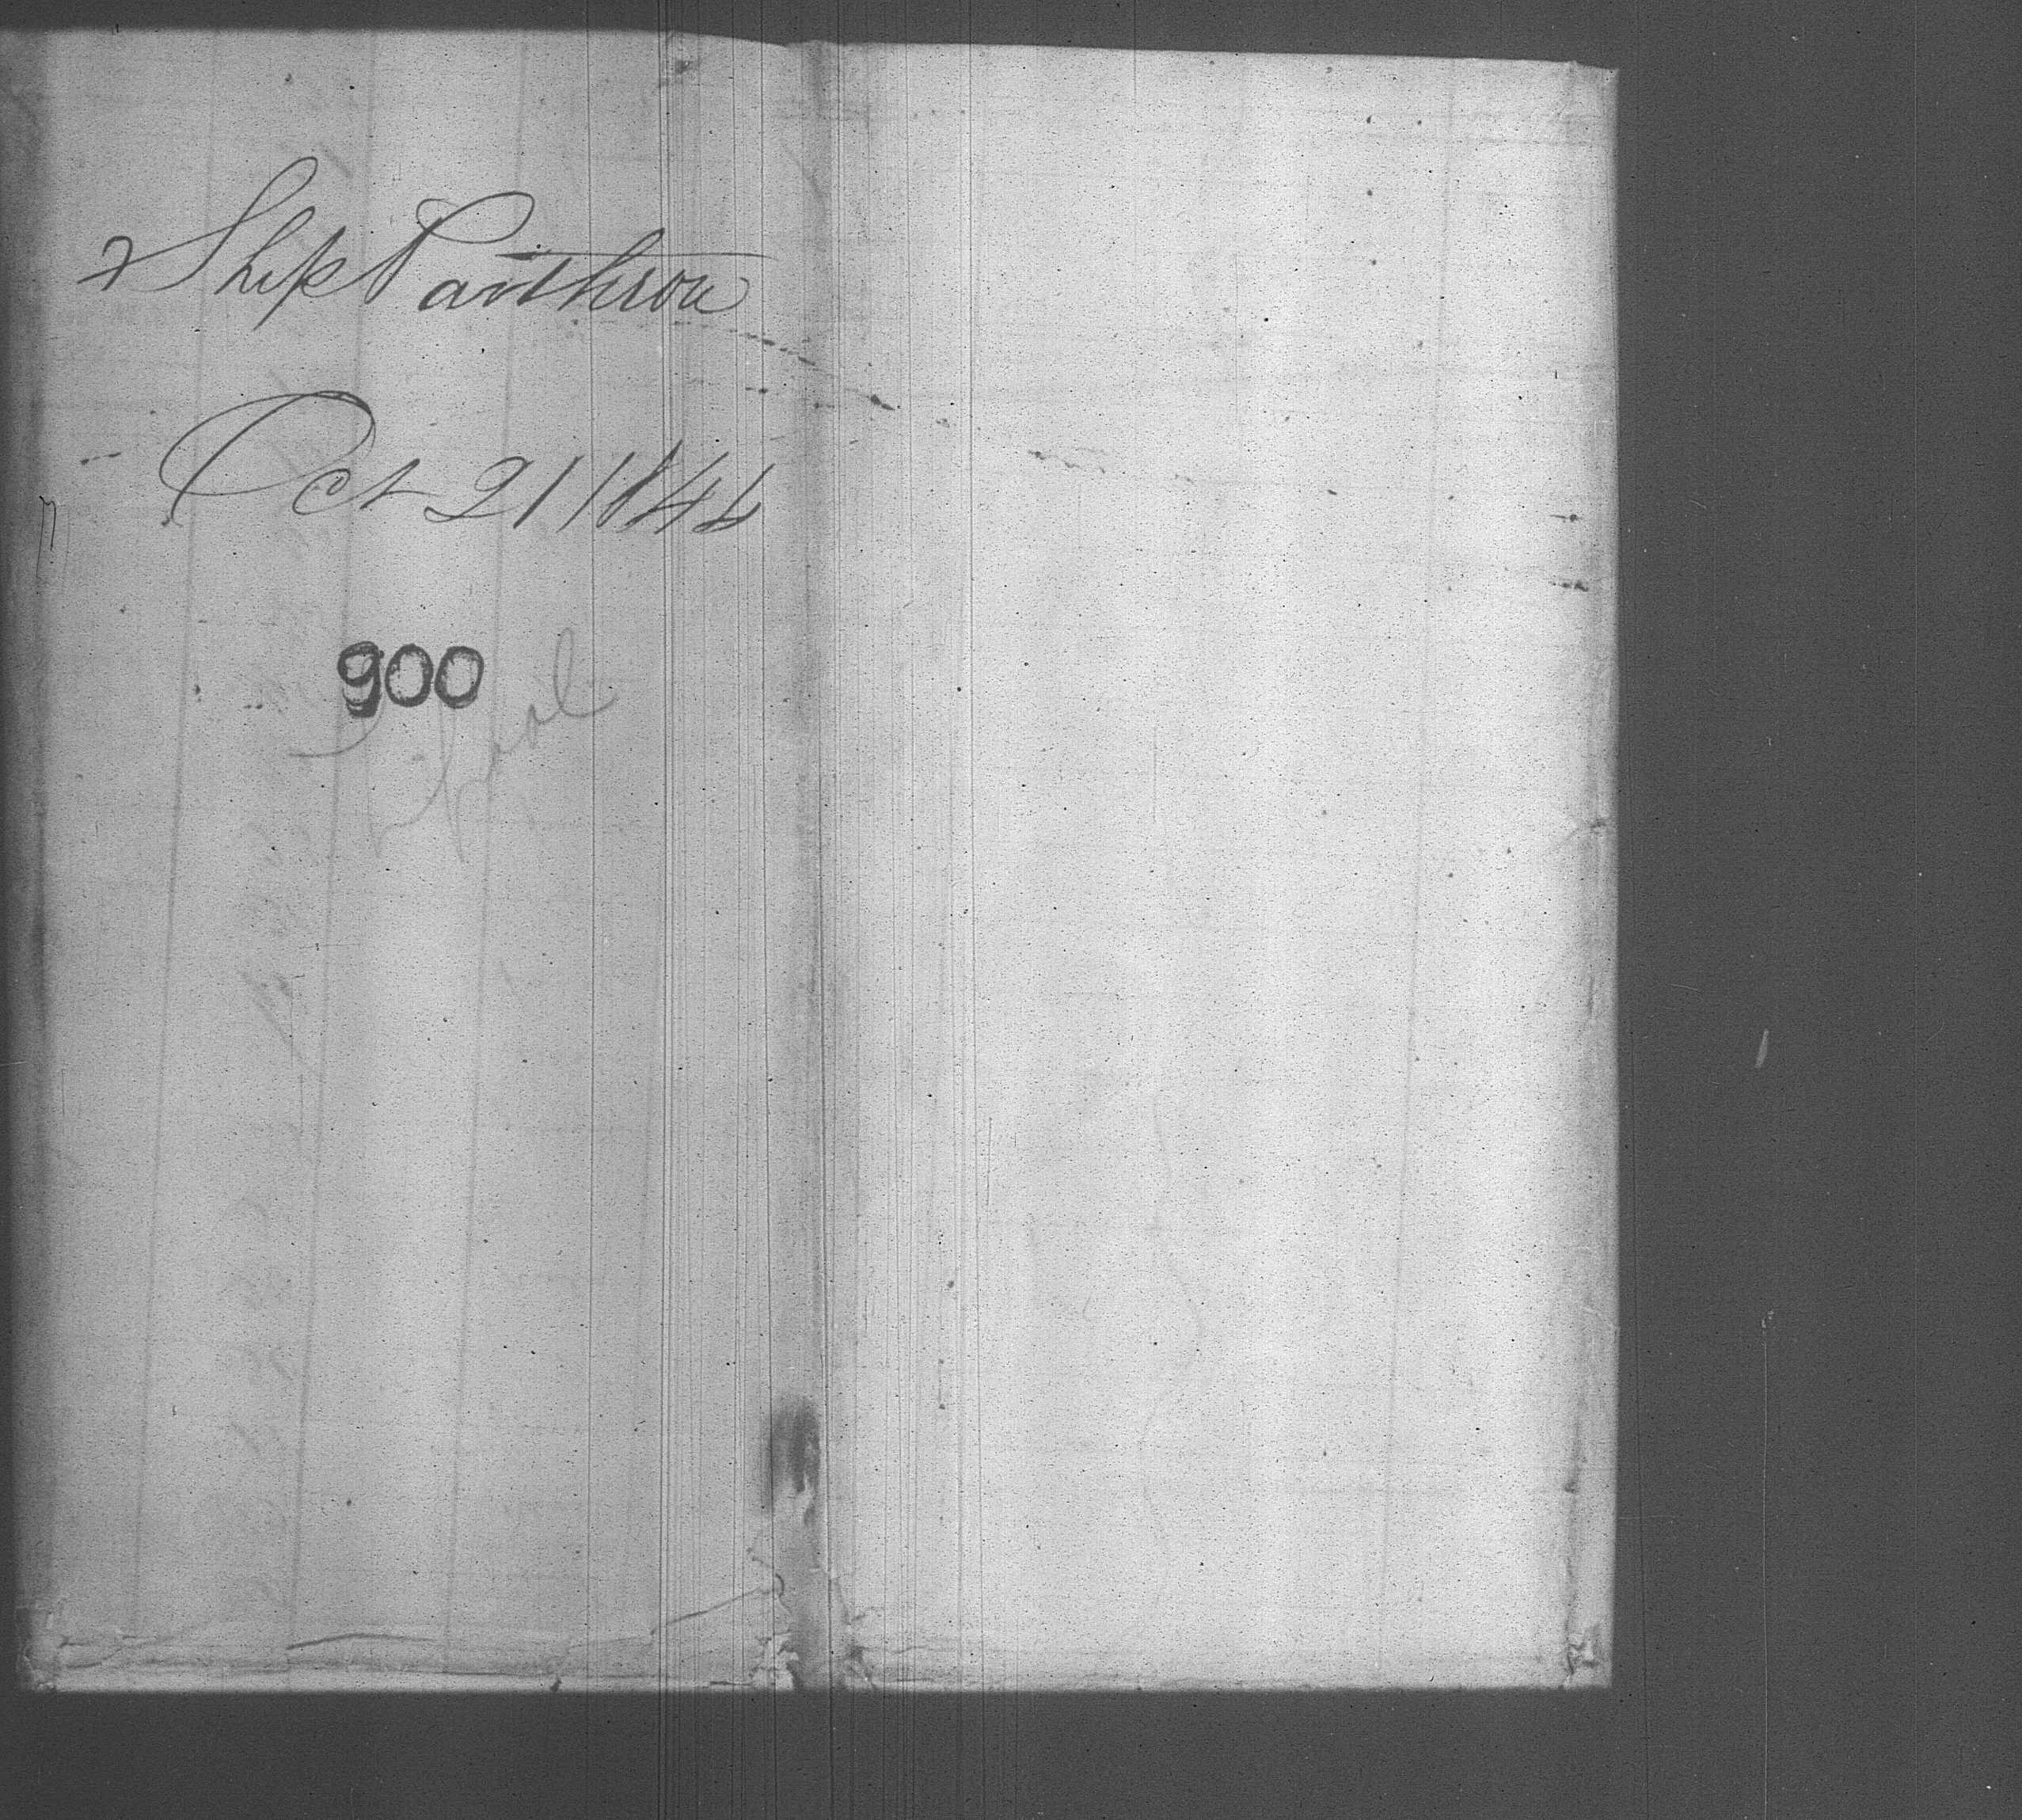 Ship Panthroa
Oct 21 1844
900
L pool